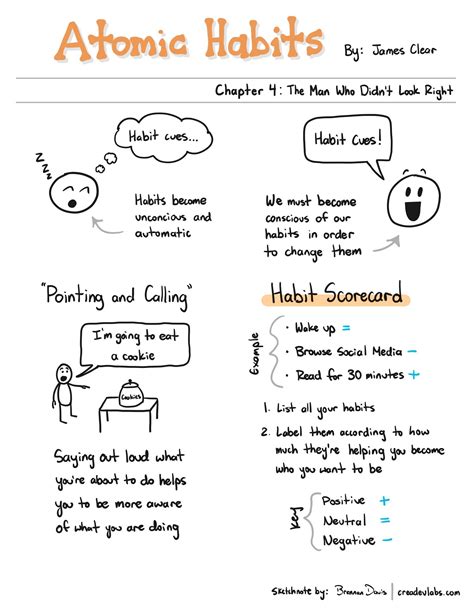 Atomic Habits
By: James Clear
Chapter 4: The Man Who Didn't Look Right
Z Z Z Z
Habit cues...
Habits become
unconcious and
automatic
Habit Cues!
We must become
conscious of our
habits in order
to change them
"Pointing and Calling"
I'm going to eat
a cookie
Cookies
Saying out loud what
you're about to do helps
you to be more aware
of what you are doing
Habit Scorecard
Example
• Wake up =
• Browse Social Media -
• Read for 30 minutes +
1. List all your habits
2. Label them according to how
much they're helping you become
who you want to be
Key
Positive +
Neutral =
Negative -
Sketchnote by: Brennan Davis | creadevlabs.com